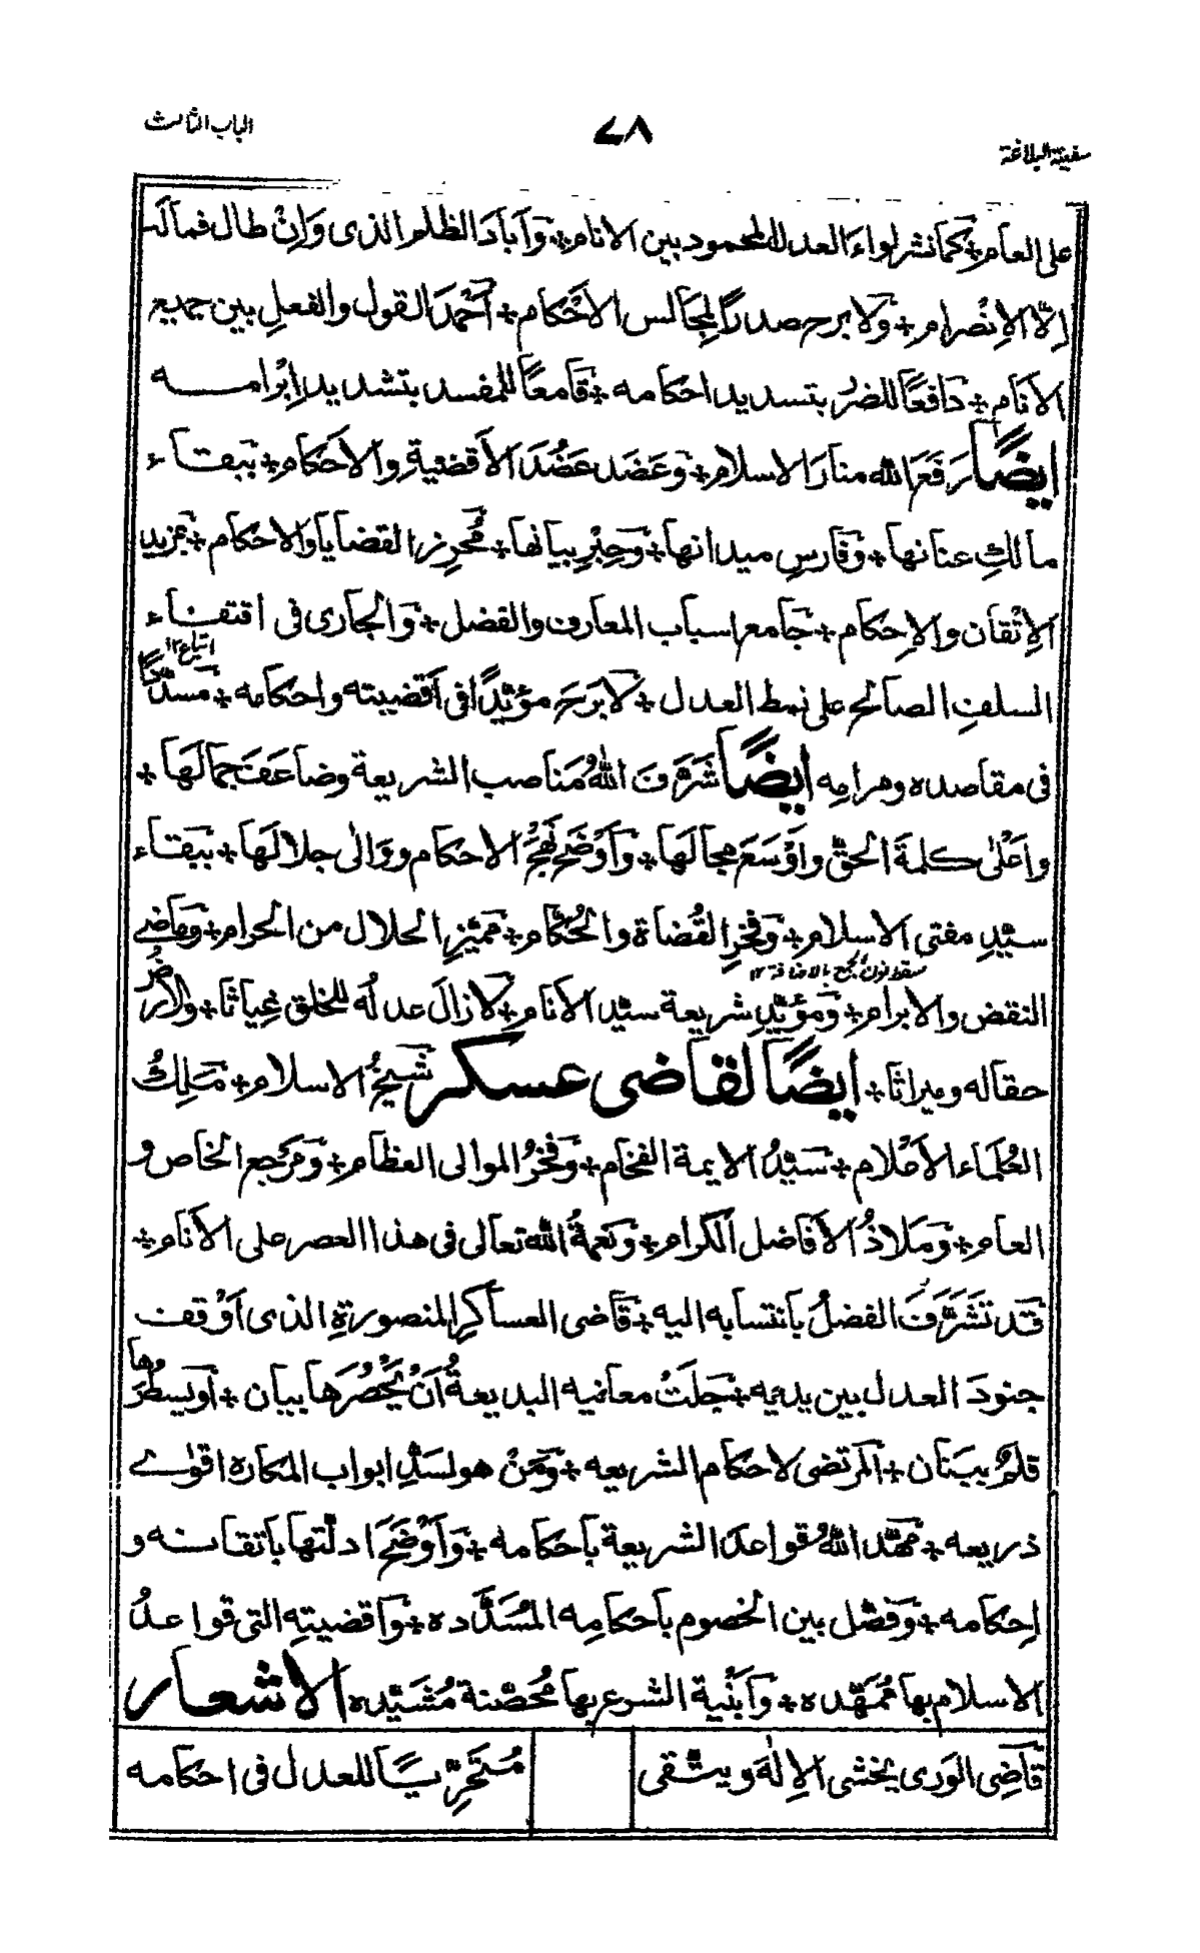 الباب الثالث
٧٨
سفينة البلاغة
على العام + كما نشر لواءَ العدل المحمود بين الانام + وَاَبادَ الظلم الذى وَاِنْ طال فمالَه
اِلّا الاِنْصرام + وَلا برح صدراً لمِجَالس الاَحْكام + اَحْمدَ القول والفعلِ بين جميع
الاَنام + دَافِعًا للضرُ بتسديد احكامه + قامعًا للمفسد بتشديد اِبْرامه
ايضًا رَفعَ الله منارَ الاسلام + وَعَضَد عَضُدَ الاَقضيةِ والاَحْكام + بَبقاء
مالكِ عنانها + وَفَارسِ ميدانها + وَحِبْرِ بيانها + مُحرِز القضايا والاحكام + بمزيد
الاِتْقان والاِحكام + جَامع اسباب المعارف والفضل + وَالجارى فى اقتفاء
اتباع ١٢
السلفِ الصالح على نمط العدل + لا بَرحَ مؤيّدًا فى اَقضيته واحكامه + مسدّدًا
فى مقاصده ومرامِه ايضًا شَرَّفَ اللهُ مَناصب الشريعة وضاعَفَ جمالَهَا +
واعْلىٰ كلمةَ الحقّ واَوْسَعَ مجالَها + وَاَوْضَحَ نَهجُ الاحكام ووَالىٰ جلالَها + بَبقاء
سيّدِ مفتى الاسلام + وَفخرِ القُضاة والحُكّام + مميّزِ الحلال من الحرام + وقاضى
سقط نون الجمع بالاضافة ١٢
النقض والابرام + وَمؤيّدِ شريعة سيّد الاَنام + لازالَ عدلُه للخلق غِياثا + والارضُ
حقاله وميراثا + ايضًا لقاضى عسكر شيخُ الاسلام + مَلِكُ
العُلماء الاَعْلام + سَيّدُ الايمة الفخام + وَفخرُ الموالى العظام + وَمَرْجع الخاص و
العام + وَمَلاذُ الاَفاضل الكرام + وَنعمةُ الله تعالى فى هذا العصر على الاَنام +
قَد تشَرَّفَ الفضلُ بانتسابه اليه + قَاضى العساكرِ المنصورةِ الذى اَوْقفت
جنودَ العدل بين يديه + جَلَتْ معانيه البديعةُ اَنْ يَّحْصُرَها بيان + اَو يَسطُرَها
قلمٌ ببَنان + المرتضى لاحكام الشريعه + وَمَنْ هو لسَدِّ ابواب المكاره اقوٰى
ذريعه + مَهّد اللهُ قواعدَ الشريعة باحكامه + وَاَوْضَحَ ادلّتها باتقانه و
اِحكامه + وَفصّل بين الخصوم باحكامِه المُسَدَّده + وَاقضيتِهِ التى قواعدُ
الاسلام بها مُمَهّده + وَاَبْنية الشرع بها مُحصّنة مُشَيّده الاشعار
قَاضِى الوَرى يخشى الاِلٰهَ ويتّقى
مُتَحَرِّيًا للعدل فى احكامه